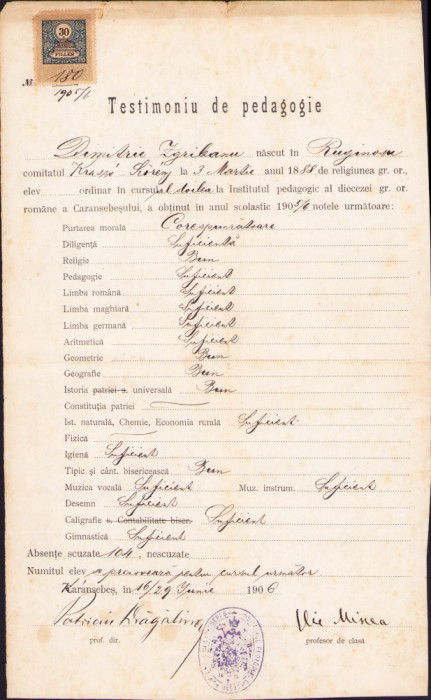 30
FILLÉR
№ 180
1905/6
Testimoniu de pedagogie
Dimitrie Zgribeanu născut în Ruginosu
comitatul Krassó-Szörény la 3 Martie anul 1888 de religiunea gr. or.,
elev ordinar în cursul al doilea la Institutul pedagogic al diecezei gr. or.
române a Caransebeșului, a obținut în anul scolastic 1905/6 notele următoare:
Purtarea morală Corespunzătoare
Diligență Suficientă
Religie Bun
Pedagogie Suficient
Limba română Suficient
Limba maghiară Suficient
Limba germană Suficient
Aritmetică Suficient
Geometrie Bun
Geografie Bun
Istoria patriei s. universală Bun
Constituția patriei
Ist. naturală, Chemie, Economia rurală Suficient
Fizica
Igienă Suficient
Tipic și cânt. bisericească Bun
Muzica vocală Suficient Muz. instrum. Suficient
Desemn Suficient
Caligrafie s. Contabilitate biser. Suficient
Gimnastică Suficient
Absențe scuzate 104, nescuzate
Numitul elev se promovează pentru cursul următor
Káránsebeș, în 16/29 Iunie 1906
Patriciu Drăgălina Ilie Minea
prof. dir. profesor de clasă